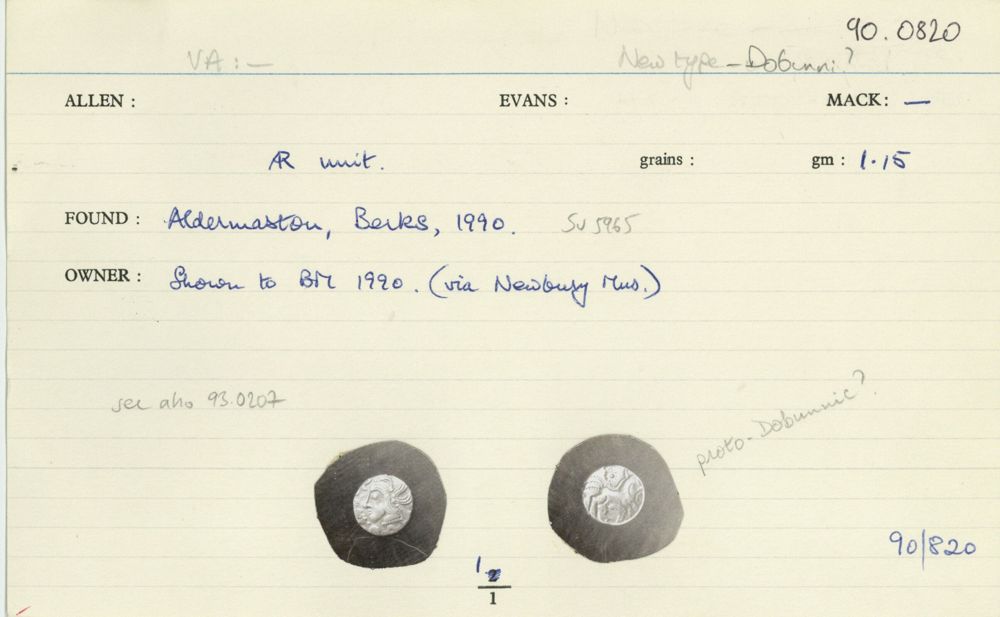 90.0820
VA : — New type – Dobunni?
ALLEN : EVANS : MACK: —
AR unit. grains : gm : 1.15
FOUND : Aldermaston, Berks, 1990. SU 5965
OWNER : Shown to BM 1990. (via Newbury Mus.)
see also 93.0207
proto-Dobunnic?
90/820
1
1